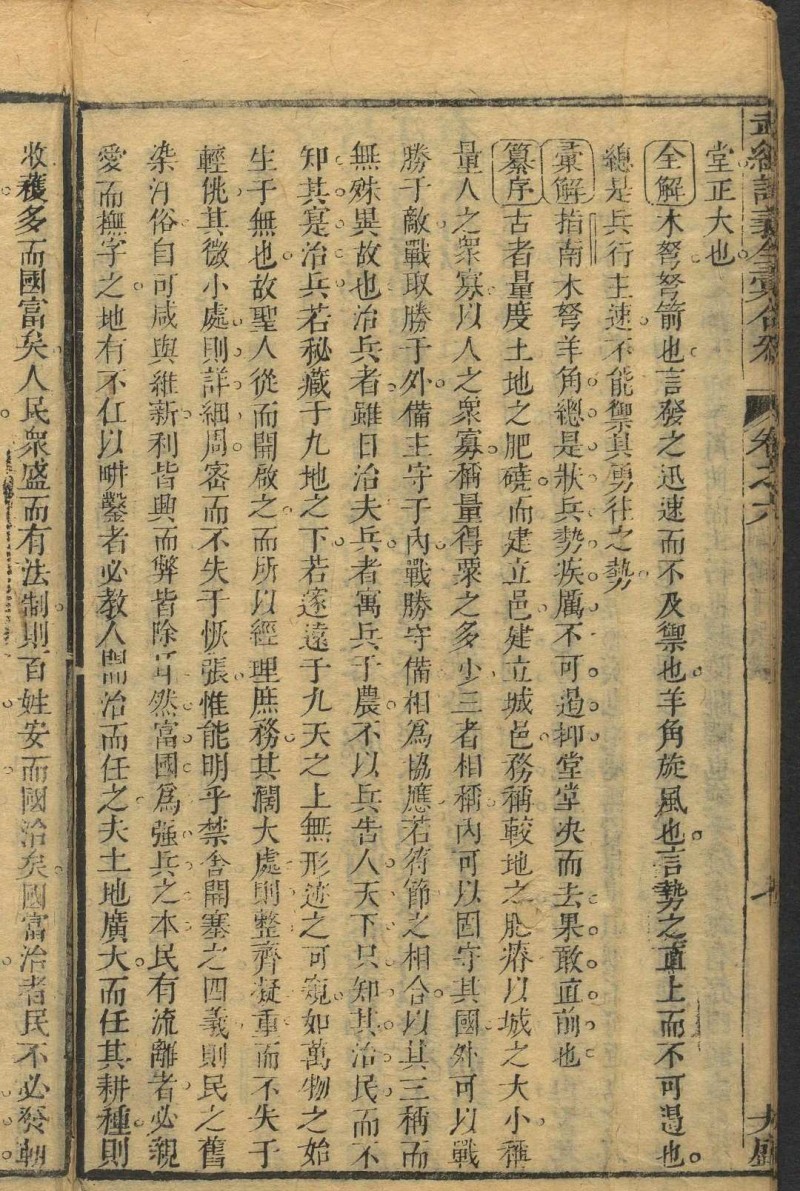 武經講義全彙合參 卷之六 七 大盛
堂正大也
全解木弩弩箭也言發之迅速而不及禦也羊角旋風也言勢之直上而不可遏也
總是兵行主速不能禦其勇往之勢
彙解指南木弩羊角總是狀兵勢疾厲不可遏抑堂堂決而去果敢直前也
纂序古者量度土地之肥磽而建立邑建立城邑務稱較地之肥瘠以城之大小稱
量人之眾寡以人之眾寡稱量得粟之多少三者相稱內可以固守其國外可以戰
勝于敵戰取勝于外備主守于內戰勝守備相爲協應若符節之相合以其三稱而
無殊異故也治兵者雖曰治夫兵者寓兵于農不以兵告人天下只知其治民而不
知其寔治兵若秘藏于九地之下若邃遠于九天之上無形迹之可窺如萬物之始
生于無也故聖人從而開啟之而所以經理庶務其濶大處則整齊凝重而不失于
輕佻其微小處則詳細周密而不失于恢張惟能明乎禁舍開塞之四義則民之舊
染汚俗自可咸與維新利皆興而弊皆除耳然富國爲强兵之本民有流離者必親
愛而撫字之地有不任以畊鑿者必教人開治而任之夫土地廣大而任其耕種則
收穫多而國富矣人民衆盛而有法制則百姓安而國治矣國富治者民不必發軔